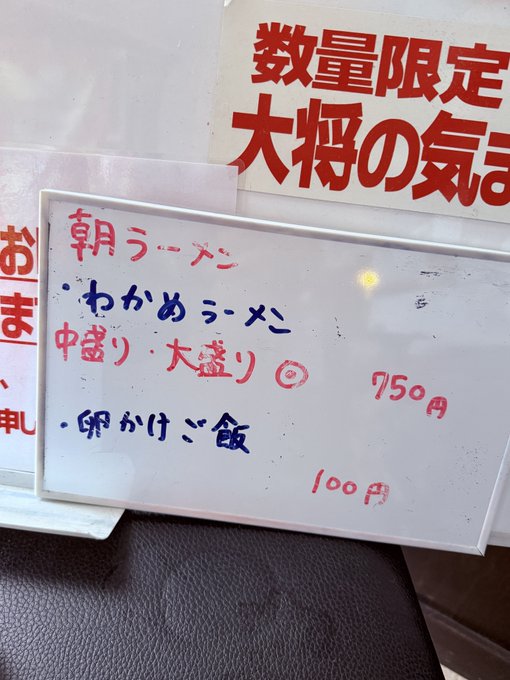 数量限定
大将の気ま
お
ま
申し
朝ラーメン
・わかめラーメン
中盛り・大盛り◎ 750円
・卵かけご飯
100円